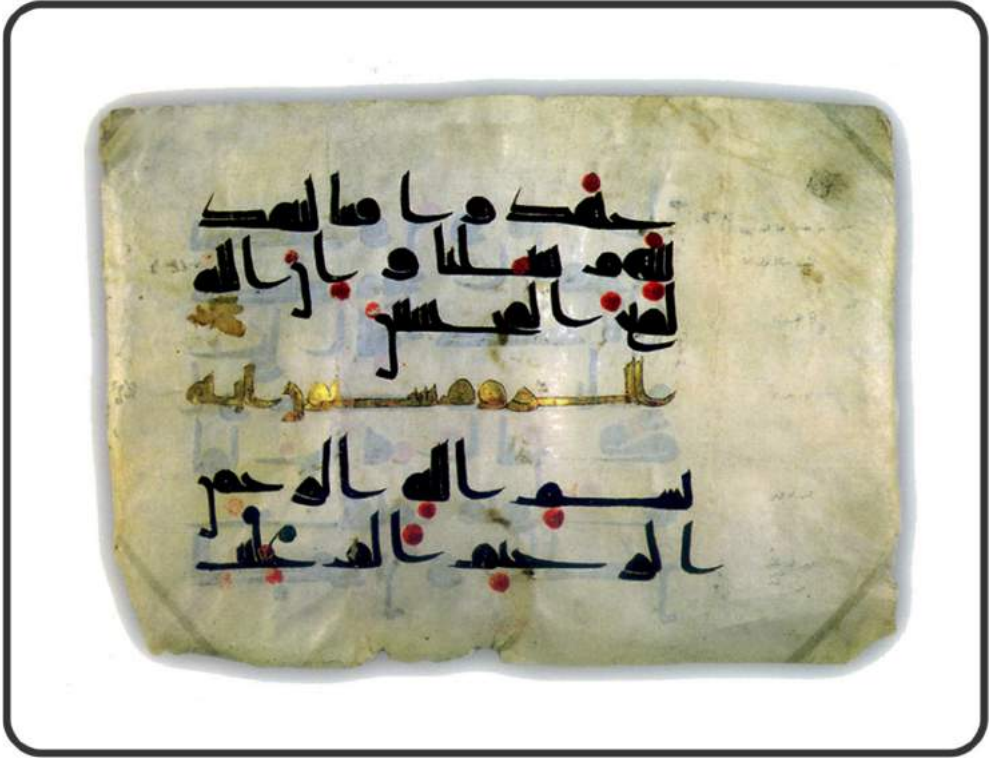 جهدوا فينا لنهد
ينهم سبلنا وان الله
لمع المحسنين
الروم ستون ايه
بسم الله الرحمن
الرحيم الم غلبت